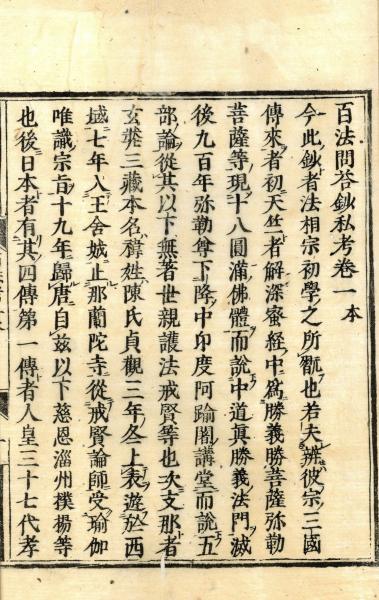 百法問答鈔私考卷一本
今此鈔者法相宗初學之所翫也若夫辨彼宗三國
傳來者初天竺者解深蜜經中爲勝義勝菩薩弥勒
菩薩等現十八圓滿佛體而說中道眞勝義法門滅
後九百年弥勒尊下降中印度阿踰闍講堂而說五
部論從其以下無著世親護法戒賢等也次支那者
玄奘三藏本名褘姓陳氏貞觀三年冬上表遊於西
域七年入王舍城止那蘭陀寺從戒賢論師受瑜伽
唯識宗旨十九年歸唐自茲以下慈恩淄州樸揚等
也後日本者有其四傳第一傳者人皇三十七代孝